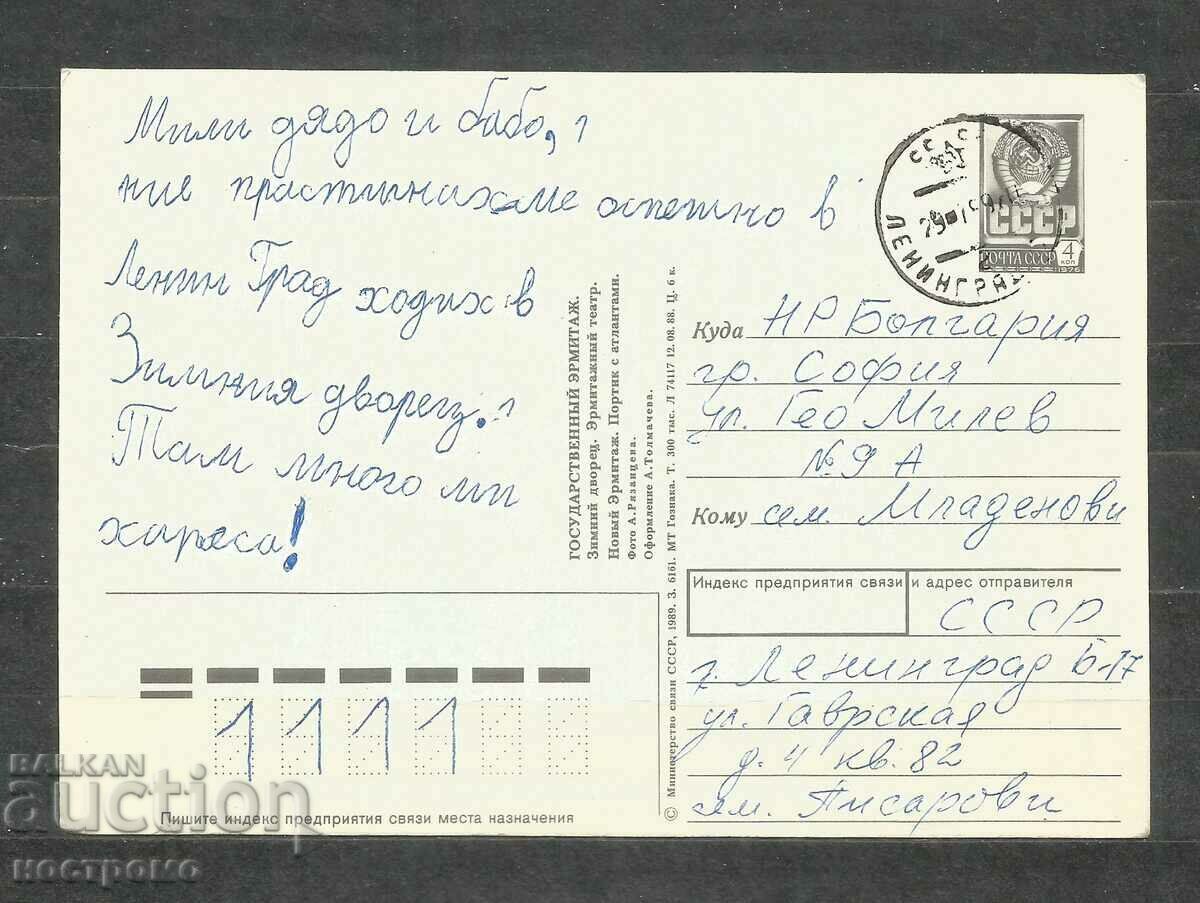 Мили дядо и бабо,
ние прастигнихме оспешно в
Ленин Град ходих в
Зимния дворец.
Там много ми
хареса!
ГОСУДАРСТВЕННЫЙ ЭРМИТАЖ.
Зимний дворец. Эрмитажный театр.
Новый Эрмитаж. Портик с атлантами.
Фото А.Рязанцева.
Оформление А.Толмачева.
© Министерство связи СССР, 1989. З. 6161. МТ Гознака. Т. 300 тыс. Л 74117 12.08.88. Ц. 6 к.
ЛЕНИНГРАД
СССР
ПОЧТА СССР 4 КОП
1976
Куда НР Болгария
гр. София
ул. Гео Милев
№ 9 А
Кому сем. Младенови
Индекс предприятия связи и адрес отправителя
СССР
г. Ленинград Б-17
ул. Гаврская
д. 4 кв. 82
сем. Писарови
1111
Пишите индекс предприятия связи места назначения
BALKAN
auction
костромо